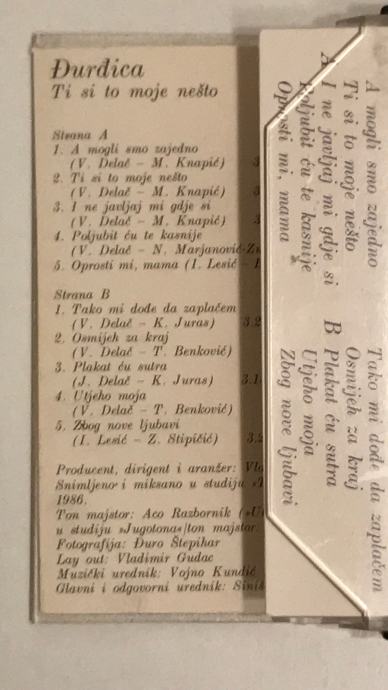 Đurđica
Ti si to moje nešto
Strana A
1. A mogli smo zajedno
(V. Delač – M. Knapić)
2. Ti si to moje nešto
(V. Delač – M. Knapić)
3. I ne javljaj mi gdje si
(V. Delač – M. Knapić)
4. Poljubit ću te kasnije
(V. Delač – N. Marjanović-
5. Oprosti mi, mama (I. Lesić –
Strana B
1. Tako mi dođe da zaplačem
(V. Delač – K. Juras)
2. Osmijeh za kraj
(V. Delač – T. Benković)
3. Plakat ću sutra
(J. Delač – K. Juras)
4. Utjeho moja
(V. Delač – T. Benković)
5. Zbog nove ljubavi
(I. Lesić – Z. Stipičić)
Producent, dirigent i aranžer:
Snimljeno i miksano u studiju
1986.
Ton majstor: Aco Razbornik
u studiju »Jugotona«/ton majstor:
Fotografija: Đuro Štepihar
Lay out: Vladimir Gudac
Muzički urednik: Vojno Kundić
Glavni i odgovorni urednik:
A mogli smo zajedno
Ti si to moje nešto
A I ne javljaj mi gdje si
Poljubit ću te kasnije
Oprosti mi, mama
Tako mi dođe da zaplačem
Osmijeh za kraj
B Plakat ću sutra
Utjeho moja
Zbog nove ljubavi